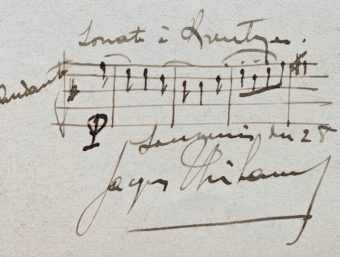 Sonate à Kreutzer.
Andante
Souvenir du 28
Jacques Thibaud